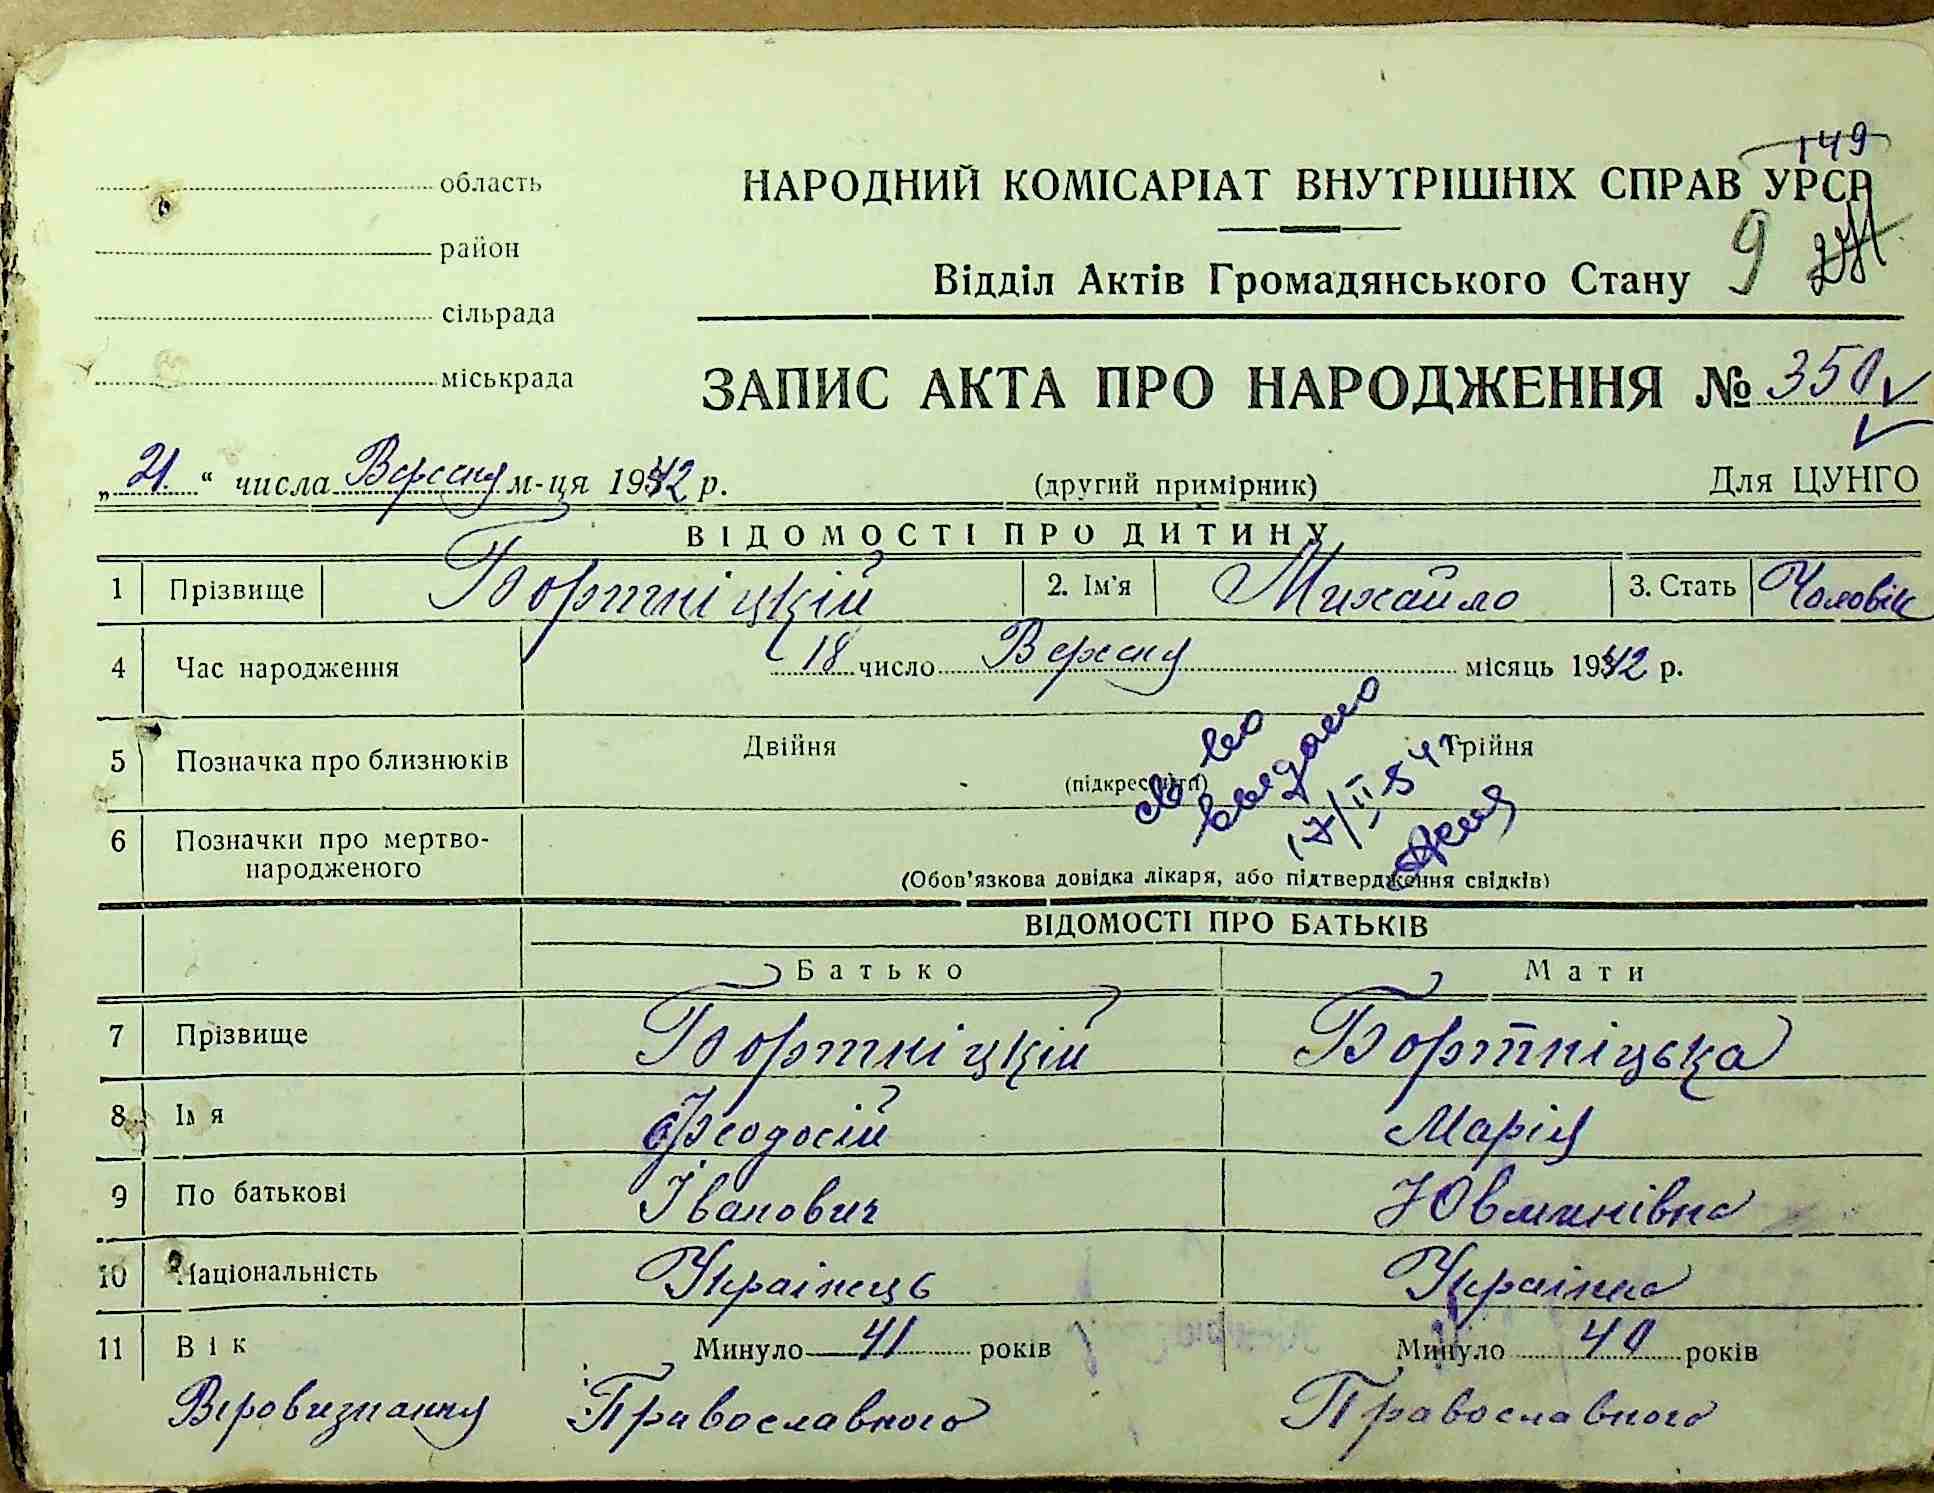 149
область
НАРОДНИЙ КОМІСАРІАТ ВНУТРІШНІХ СПРАВ УРСР
район
9
Відділ Актів Громадянського Стану
сільрада
міськрада
ЗАПИС АКТА ПРО НАРОДЖЕННЯ № 350
„21“ числа Вересня м-ця 1942 р.
(другий примірник)
Для ЦУНГО
ВІДОМОСТІ ПРО ДИТИНУ
1 Прізвище Бортніцкій 2. Ім'я Михайло 3. Стать Чоловік
4 Час народження 18 число Вересня місяць 1942 р.
5 Позначка про близнюків Двійня Трійня
(підкреслити)
св во
выдано
17/II 54
6 Позначки про мертво-
народженого
(Обов'язкова довідка лікаря, або підтвердження свідків)
ВІДОМОСТІ ПРО БАТЬКІВ
Батько Мати
7 Прізвище Бортніцкій Бортніцька
8 Ім я Феодосій Марія
9 По батькові Іванович
10 Національність Українець Українка
11 Вік Минуло 41 років Минуло 40 років
Віровизнання Православного Православного